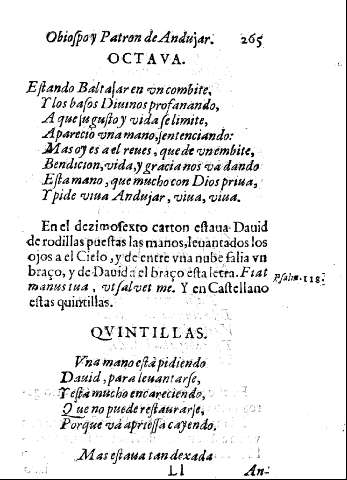 Obiospo y Patron de Andujar. 265
OCTAVA.
Estando Baltasar en vn combite,
Y los basos Diuinos profanando,
A que su gusto y vida se limite,
Aparecio vna mano, sentenciando:
Mas oy es a el reues, que de vn embite,
Bendicion, vida, y gracia nos va dando
Esta mano, que mucho con Dios priua,
Y pide viua Andujar, viua, viua.
En el dezimosexto carton estaua Dauid
de rodillas puestas las manos, leuantados los
ojos a el Cielo, y de entre vna nube salia vn
braço, y de Dauid a el braço esta letra. Fiat
Psalm. 118.
manus tua, vt saluet me. Y en Castellano
estas quintillas.
QVINTILLAS.
Vna mano està pidiendo
Dauid, para leuantarse,
Y està mucho encareciendo,
Que no puede restaurarse,
Porque và apriessa cayendo.
Mas estaua tan dexada
Ll An-